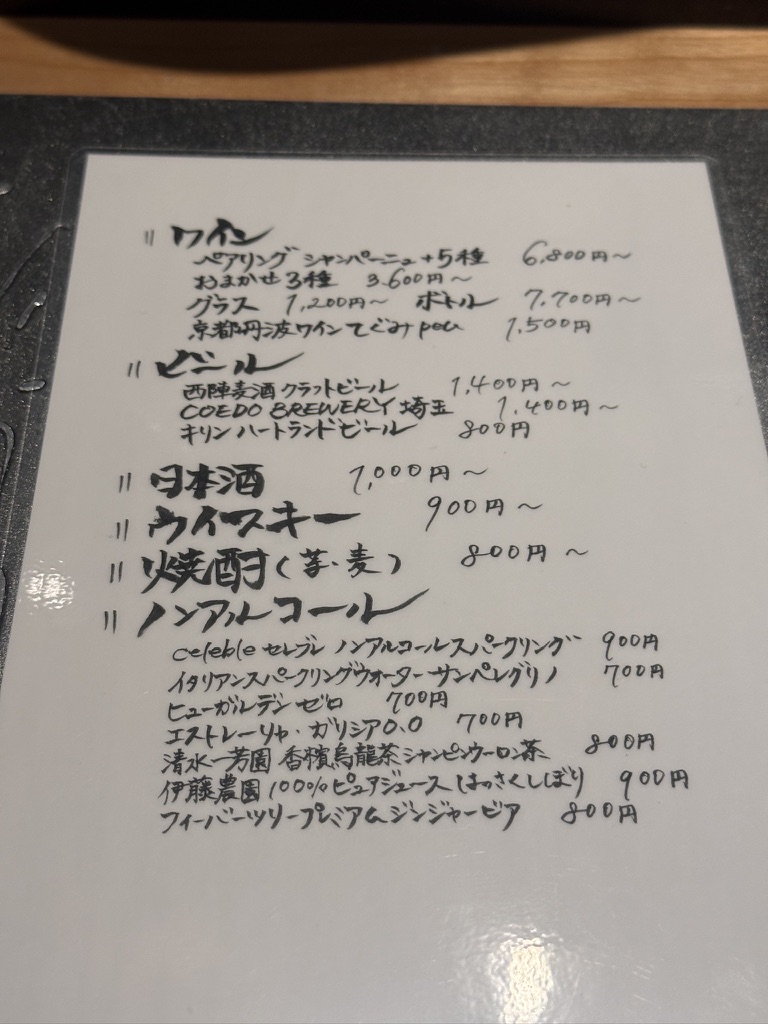 〃 ワイン
ペアリング シャンパーニュ+5種 6,800円〜
おまかせ3種 3,600円〜
グラス 1,200円〜 ボトル 7,700円〜
京都丹波ワイン てぐみ peu 1,500円
〃 ビール
西陣麦酒 クラフトビール 1,400円〜
COEDO BREWERY 埼玉 1,400円〜
キリン ハートランドビール 800円
〃 日本酒 1,000円〜
〃 ウイスキー 900円〜
〃 焼酎(芋・麦) 800円〜
〃 ノンアルコール
celeble セレブレ ノンアルコールスパークリング 900円
イタリアンスパークリングウォーター サンペレグリノ 700円
ヒューガルデン ゼロ 700円
エストレーリャ・ガリシア0.0 700円
清水一芳園 香檳烏龍茶 シャンピンウーロン茶 800円
伊藤農園 100%ピュアジュース はっさくしぼり 900円
フィーバーツリー プレミアムジンジャービア 800円